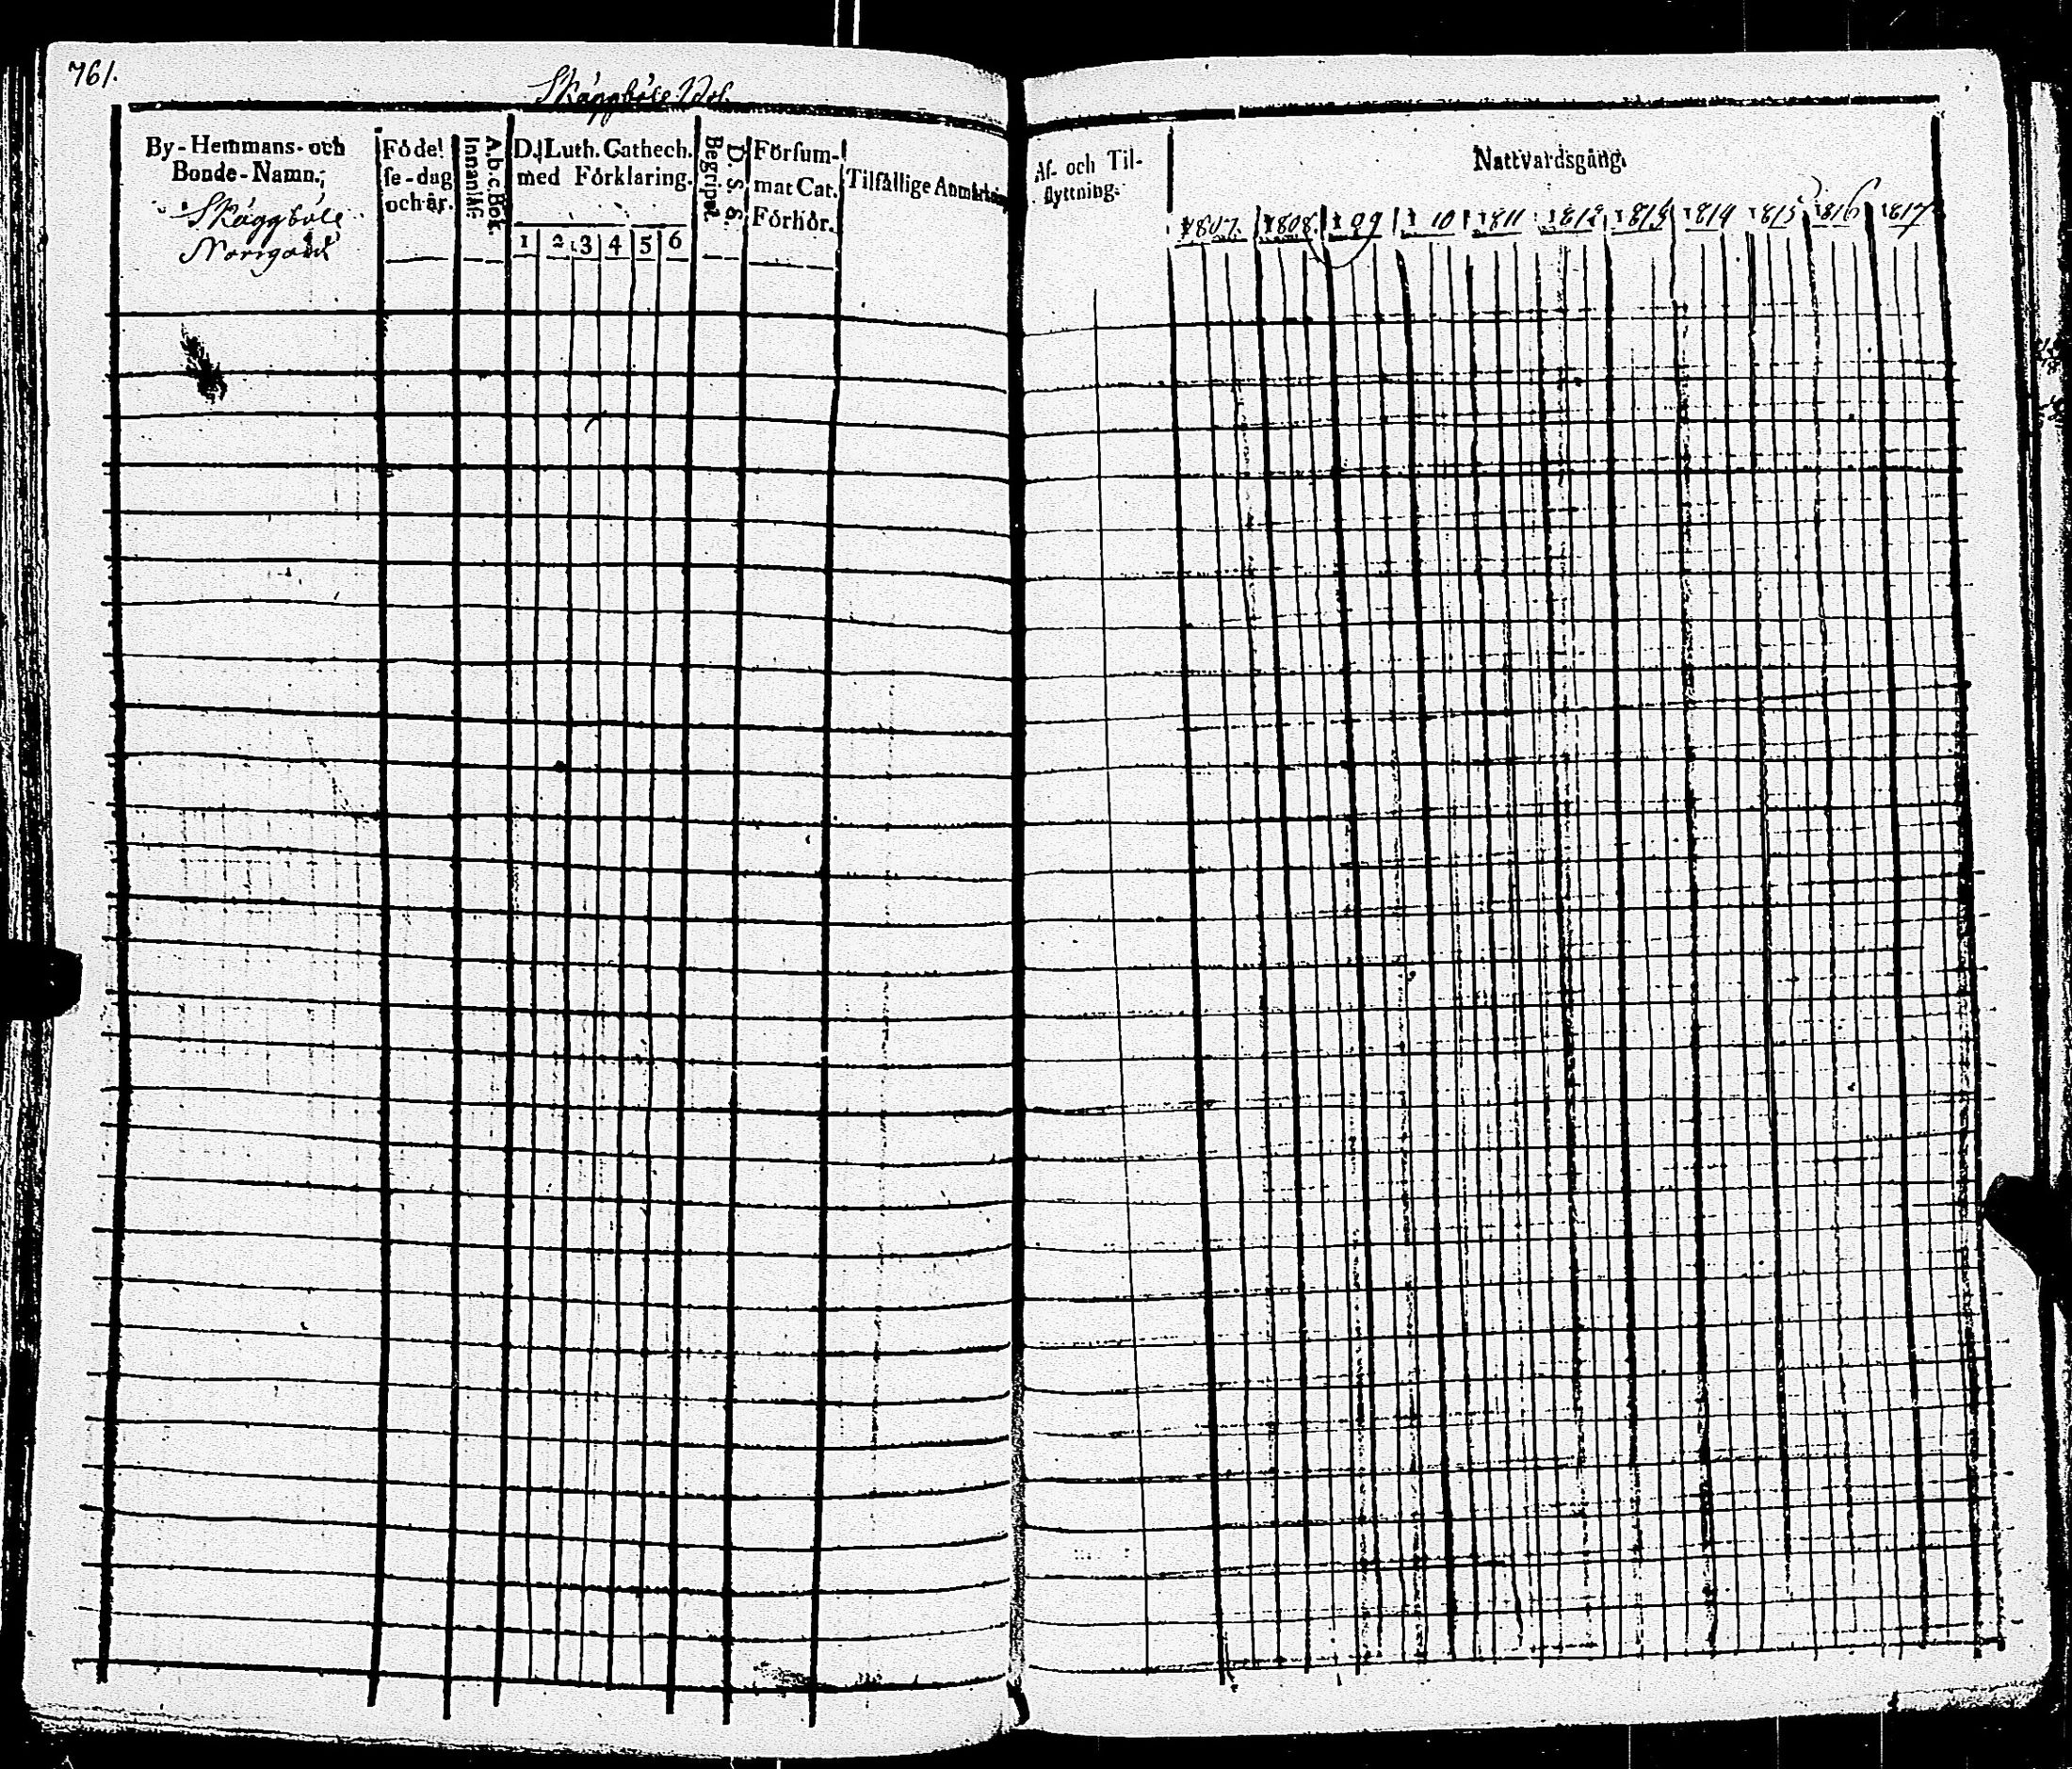 761.
Skäggböle
By-Hemmans- och
Bonde-Namn.
Skäggböle
Norrgård
Födel
se-dag
och år.
A.b.c.Bok.
Innanläs.
D. Luth. Cathech.
med Förklaring.
1 2 3 4 5 6
D. S. S.
Begripet.
Försum-
mat Cat.
Förhör.
Tilfällige Anmärkning
Af- och Til-
flyttning.
Nattvardsgång.
1807. 1808. 109 1 10 1811 1812 1813 1814 1815 1816 1817